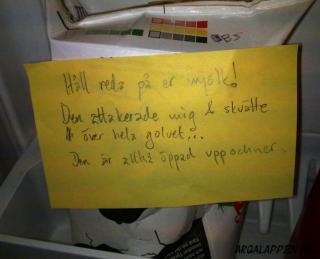 Håll reda på er mjölk!
Den attakerade mig & skvätte
över hela golvet...
Den är alltid öppad uppochner.
ARGALAPPEN